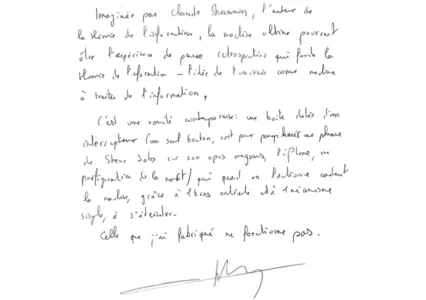 Imaginée par Claude Shannon, l'auteur de
la théorie de l'information, la machine ultime pourrait
être l'expérience de pensée rétrospective qui fonde la
théorie de l'information – l'idée de l'univers comme machine
à traiter de l'information.
C'est une vanité contemporaine : une boîte dotée d'un
interrupteur (un seul bouton, soit pour paraphraser une phrase
de Steve Jobs sur son opus magnum, l'iPhone, une
préfiguration de la mort) qui quand on l'actionne conduit
la machine, grâce à un bras articulé et à un mécanisme
simple, à s'éteindre.
Celle que j'ai fabriqué ne fonctionne pas.